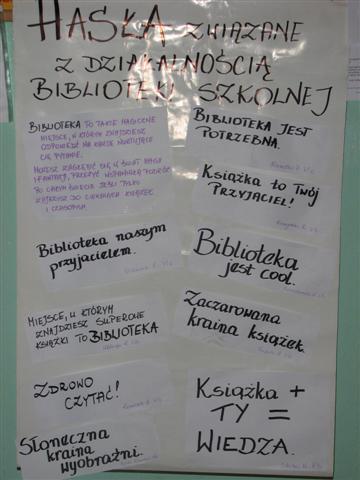 HASŁA ZWIĄZANE
Z DZIAŁALNOŚCIĄ
BIBLIOTEKI SZKOLNEJ
BIBLIOTEKA TO TAKIE MAGICZNE
MIEJSCE, W KTÓRYM ZNAJDZIESZ
ODPOWIEDŹ NA KAŻDE NURTUJĄCE
CIĘ PYTANIE.
MOŻESZ ZAGŁĘBIĆ SIĘ W ŚWIAT MAGII
I FANTAZJI, PRZEŻYĆ WSPANIAŁĄ PODRÓŻ
PO CAŁYM ŚWIECIE JEŚLI TYLKO
ZAJRZYSZ DO CIEKAWYCH KSIĄŻEK
I CZASOPISM.
Biblioteka naszym
przyjacielem.
MIEJSCE, W KTÓRYM
ZNAJDZIESZ SUPEROWE
KSIĄŻKI TO BIBLIOTEKA
ZDROWO
CZYTAĆ!
Słoneczna
kraina
wyobraźni.
BIBLIOTEKA JEST
POTRZEBNA.
Książka to Twój
PRZYJACIEL!
Biblioteka
jest cool.
Zaczarowana
kraina książek.
Książka +
TY =
WIEDZA.